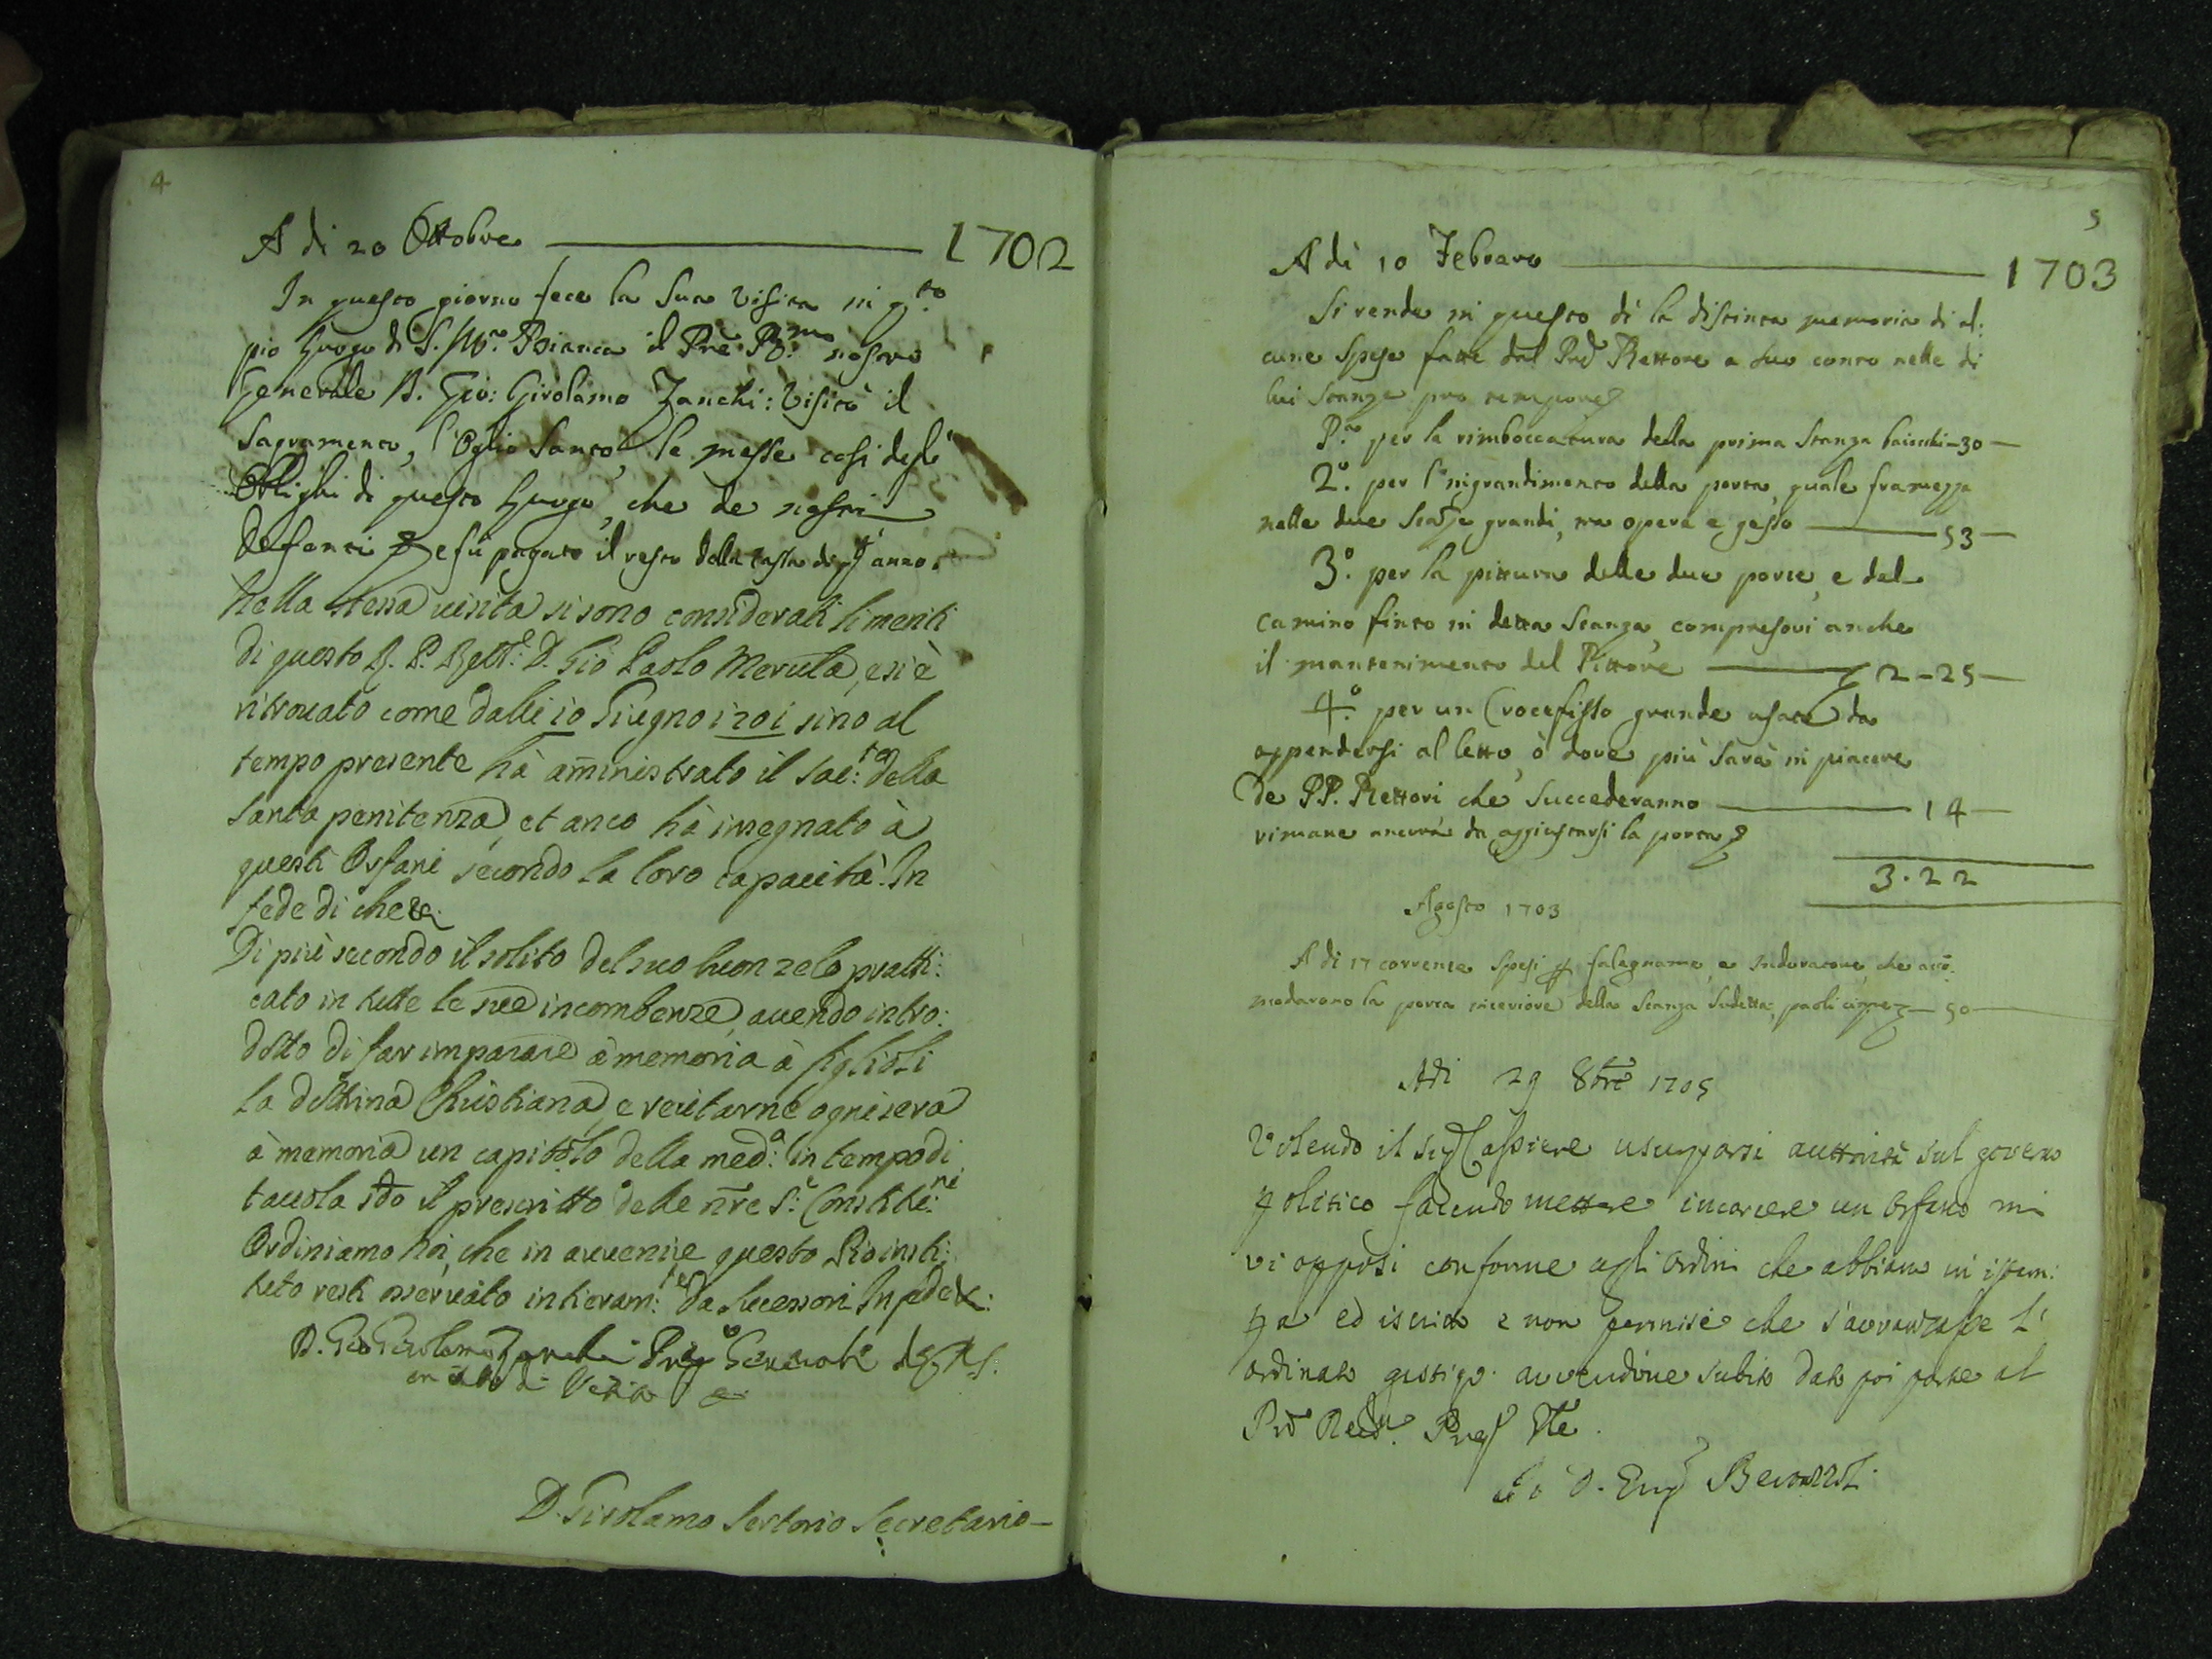 4
A di 20 Ottobre 1702
In questo giorno fece la Sua Visita in q.to
pio Luogo di S. M.a Bianca il Pre R.mo nostro
Generale D. Gio: Girolamo Zanchi: Visitò il
Sagramento, l'Oglio Santo, le messe così degl'
Obblighi di questo Luogo, che de nostri
Defonti e fù pagato il resto della tassa di anno.
Nella stessa uisita si sono considerati li meriti
di questo R. P. Rett.e D. Gio Paolo Merula, e si è
ritrouato come dalli 10 Giugno 1701 sino al
tempo presente hà am̃inistrato il Sac:to della
santa penitenza, et anco hà insegnato à
questi Orfani secondo la loro capacità. In
fede di che &.
Di più secondo il solito del suo buon zelo pratti:
cato in tutte le sue incombenze, auendo intro:
dotto di far imparare à memoria à figlioli
la dottrina Christiana, e recitarne ogni sera
à memoria un capitolo della med:a in tempo di
tauola sdo il prescritto delle nr̃e S.e Constitu:ni
Ordiniamo noi, che in auuenire questo Pio insti:
tuto resti osseruato intieram:te da Successori In fede &:
D. Gio Girolamo Zanchi Prep.o Generale
in atto di Visita
D. Girolamo Sertorio Secretario
5
A dì 10 Febraro 1703
Si rende in questo dì la distinta memoria di al:
cune Spese fatte dal Prõ Rettore a suo conto nelle di
lui Stanze pro tempore
P.a per la rimboccatura della prima Stanza baiocchi - 30 -
2.o per l'ingrandimento della porta, quale framezza
nelle due Stanze grandi, tra opera e gesso 53
3.o per la pittura delle due porte, e del
camino finto in detta Stanza, compresovi anche
il mantenimento del Pittore 2 - 25
4.o per un Crocefisso grande da
appendersi al letto, ò dove più sarà in piacere
de PP. Rettori che Succederanno 14
rimane ancora da aggiustarsi la porta
3.22
Agosto 1703
A di 17 corrente Spesi falegname, e Indoratore, che acco:
modarono la porta interiore della Stanza Sudetta, paoli cinque - 50
Adi 29 8bre 1705
Volendo il Sig Cassiere usurparsi auttorità sul governo
politico facendo mettere in carcere un Orfano mi
vi opposi conforme agli ordini che abbiamo in istam:
pa ed iscritto e non permisi che s'avvanzasse l'
ordinato gastigo. avendone subito dato poi parte al
Prõ Preg
D. Eug Bevo